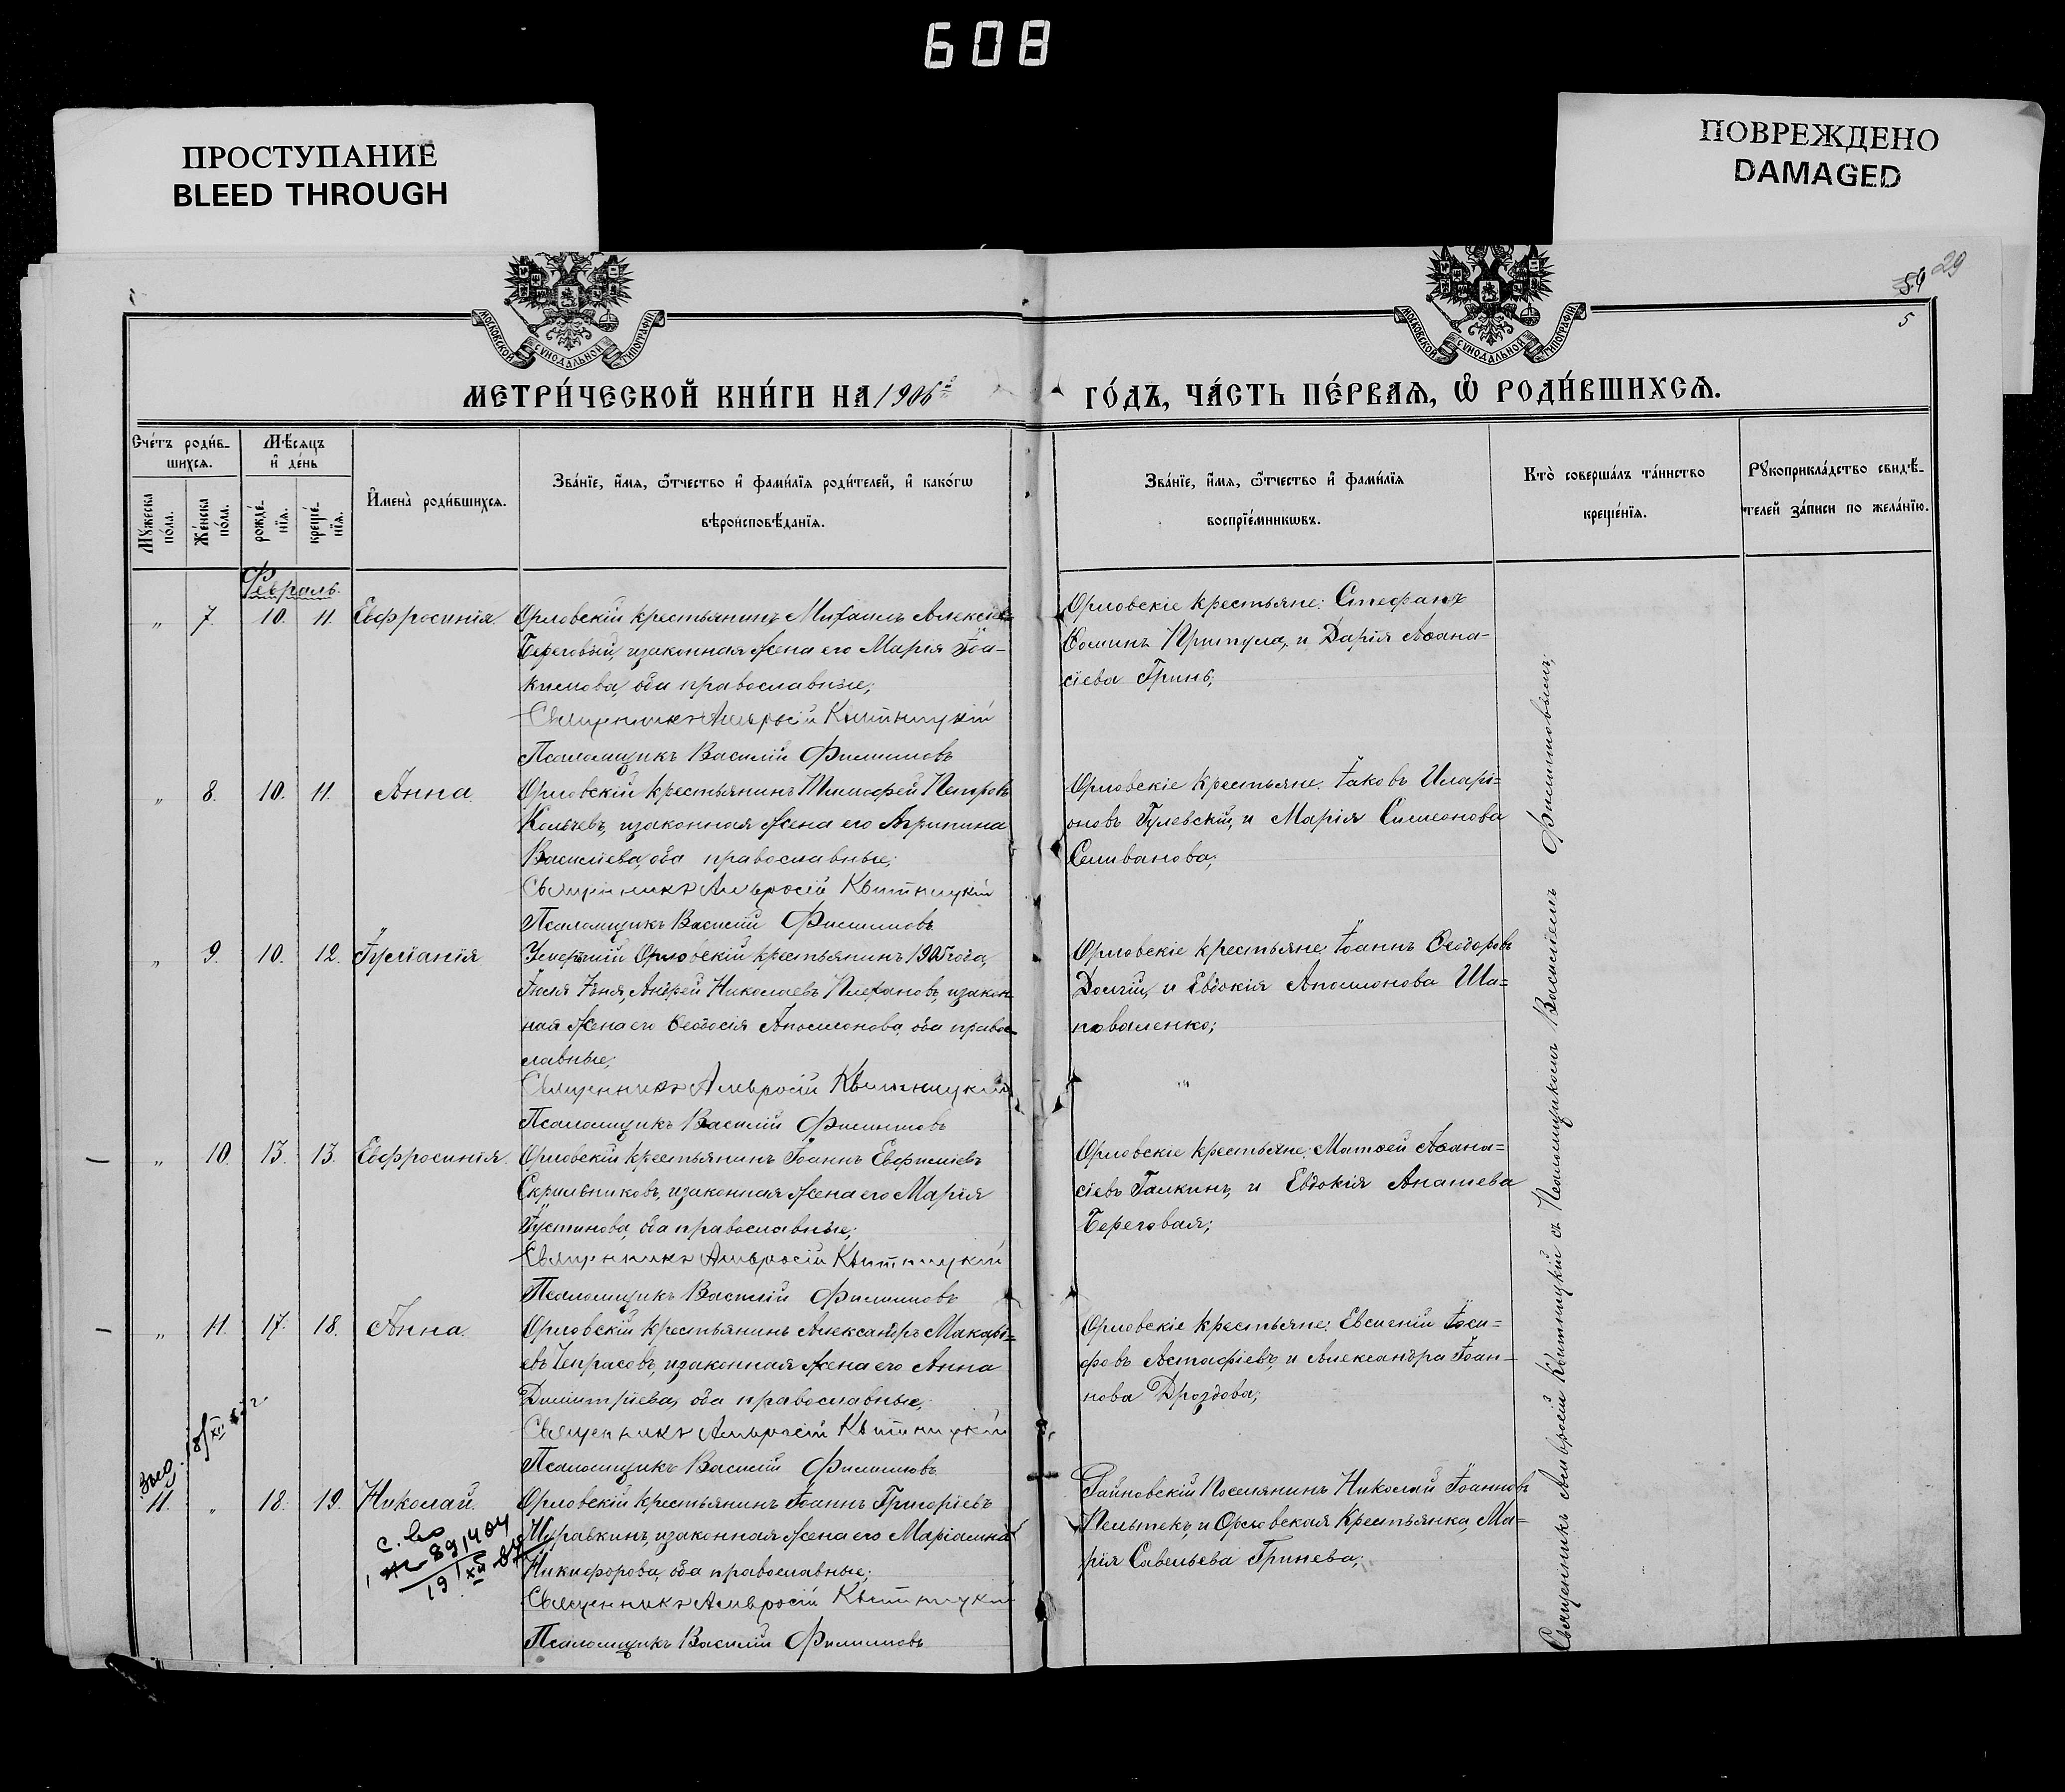 608
ПРОСТУПАНИЕ
BLEED THROUGH
ПОВРЕЖДЕНО
DAMAGED
МОСКОВСКОЙ СѴНОДАЛЬНОЙ ТИПОГРАФІИ.
МОСКОВСКОЙ СѴНОДАЛЬНОЙ ТИПОГРАФІИ.
54 29
5
МЕТРИ́ЧЕСКОЙ КНИ́ГИ НА 1906й
ГО́ДЪ, ЧА́СТЬ ПЕ́РВАѦ, Ѡ҆ РОДИ́ВШИХСѦ.
Сче́тъ роди́в-
шихсѧ.
Мѣ́сяцъ
и҆ де́нь
Мꙋ́жеска
по́ла.
Же́нска
по́ла.
рожде́-
нїѧ.
креще́-
нїѧ.
И҆мена̀ роди́вшихсѧ.
Зва́нїе, и҆́мѧ, ѻ҆́тчество и҆ фами́лїѧ роди́телей, и҆ како́гѡ
вѣроисповѣ́данїѧ.
Зва́нїе, и҆́мѧ, ѻ҆́тчество и҆ фами́лїѧ
воспрїе́мникѡвъ.
Кто̀ соверша́лъ та́инство
креще́нїѧ.
Рꙋкоприкла́дство свидѣ́-
телей за́писи по жела́нїю.
Февраль.
„ 7. 10. 11. Евфросинія. Орловскій крестьянинъ Михаилъ Алексіевъ
Береговый, и законная жена его Марія Іоа-
кимова, оба православные;
Священникъ Амвросій Квитницкій
Псаломщикъ Василій Филиповъ
Орловскіе крестьяне: Стефанъ
Ѳоминъ Притула, и Дарія Аѳана-
сіева Гринь;
„ 8. 10. 11. Анна. Орловскій крестьянинъ Тимофей Петровъ
Колычевъ, и законная жена его Агрипина
Василіева, оба православные;
Священникъ Амвросій Квитницкій
Псаломщикъ Василій Филиповъ
Орловскіе крестьяне: Іаковъ Иларі=
оновъ Гулевскій, и Марія Симеонова
Селиванова;
„ 9. 10. 12. Іуліанія. Умершій Орловскій крестьянинъ 1905 года,
Іюля дня, Андрей Николаевъ Плехановъ, и закон-
ная жена его Ѳеодосія Аполлонова, оба право-
славные;
Священникъ Амвросій Квитницкій
Псаломщикъ Василій Филиповъ
Орловскіе крестьяне: Іоаннъ Ѳеодоровъ
Долгій, и Евдокія Аполлонова Ша=
поваленко;
„ 10. 13. 13. Евфросинія. Орловскій крестьянинъ Іоаннъ Евфиміевъ
Скрильниковъ, и законная жена его Марія
Іустинова, оба православные;
Священникъ Амвросій Квитницкій
Псаломщикъ Василій Филиповъ
Орловскіе крестьяне: Матѳей Аѳана=
сіевъ Галкинъ, и Евдокія Анашева
Береговая;
„ 11. 17. 18. Анна. Орловскій крестьянинъ Александръ Макарі=
евъ Чепрасовъ, и законная жена его Анна
Димитріева, оба православные;
Священникъ Амвросій Квитницкій
Псаломщикъ Василій Филиповъ
Орловскіе крестьяне: Евсигній Іоси=
фовъ Астафіевъ, и Александра Іоан-
нова Дроздова;
11. „ 18. 19. Николай. Орловскій крестьянинъ Іоаннъ Григоріевъ
Журавкинъ, и законная жена его Маріамна
Никифорова, оба православные;
Священникъ Амвросій Квитницкій
Псаломщикъ Василій Филиповъ
Поселянинъ Николай Іоанновъ
Пельтекъ, и Орловская крестьянка, Ма=
рія Савельева Гринева;
Священникъ Амвросій Квитницкій съ Псаломщикомъ Василіемъ Филиповымъ;